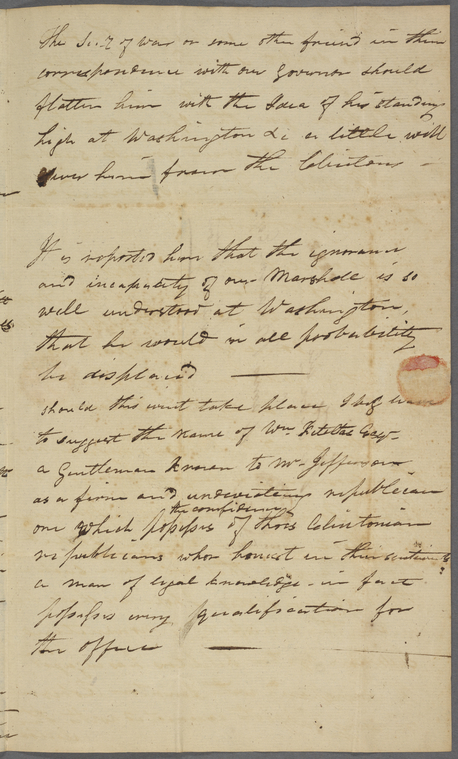 The Sec.y of war or some other friend in their
correspondence with our Governor should
flatter him with the Idea of his standing
high at Washington &c a little will
sever him from the Clintons –
It is reported here that the ignorance
and incapacity of our Marshall is so
well understood at Washington,
that he would in all probability
be displaced —
should this event take place I beg leave
to suggest the name of Wm. Esqr.
a Gentleman known to Mr. Jefferson
as a firm and undeviating republican
one which possesses
the confidence
of those Clintonian
republicans who honest in their
a man of legal knowledge – in fact
possesses every qualification for
the office —